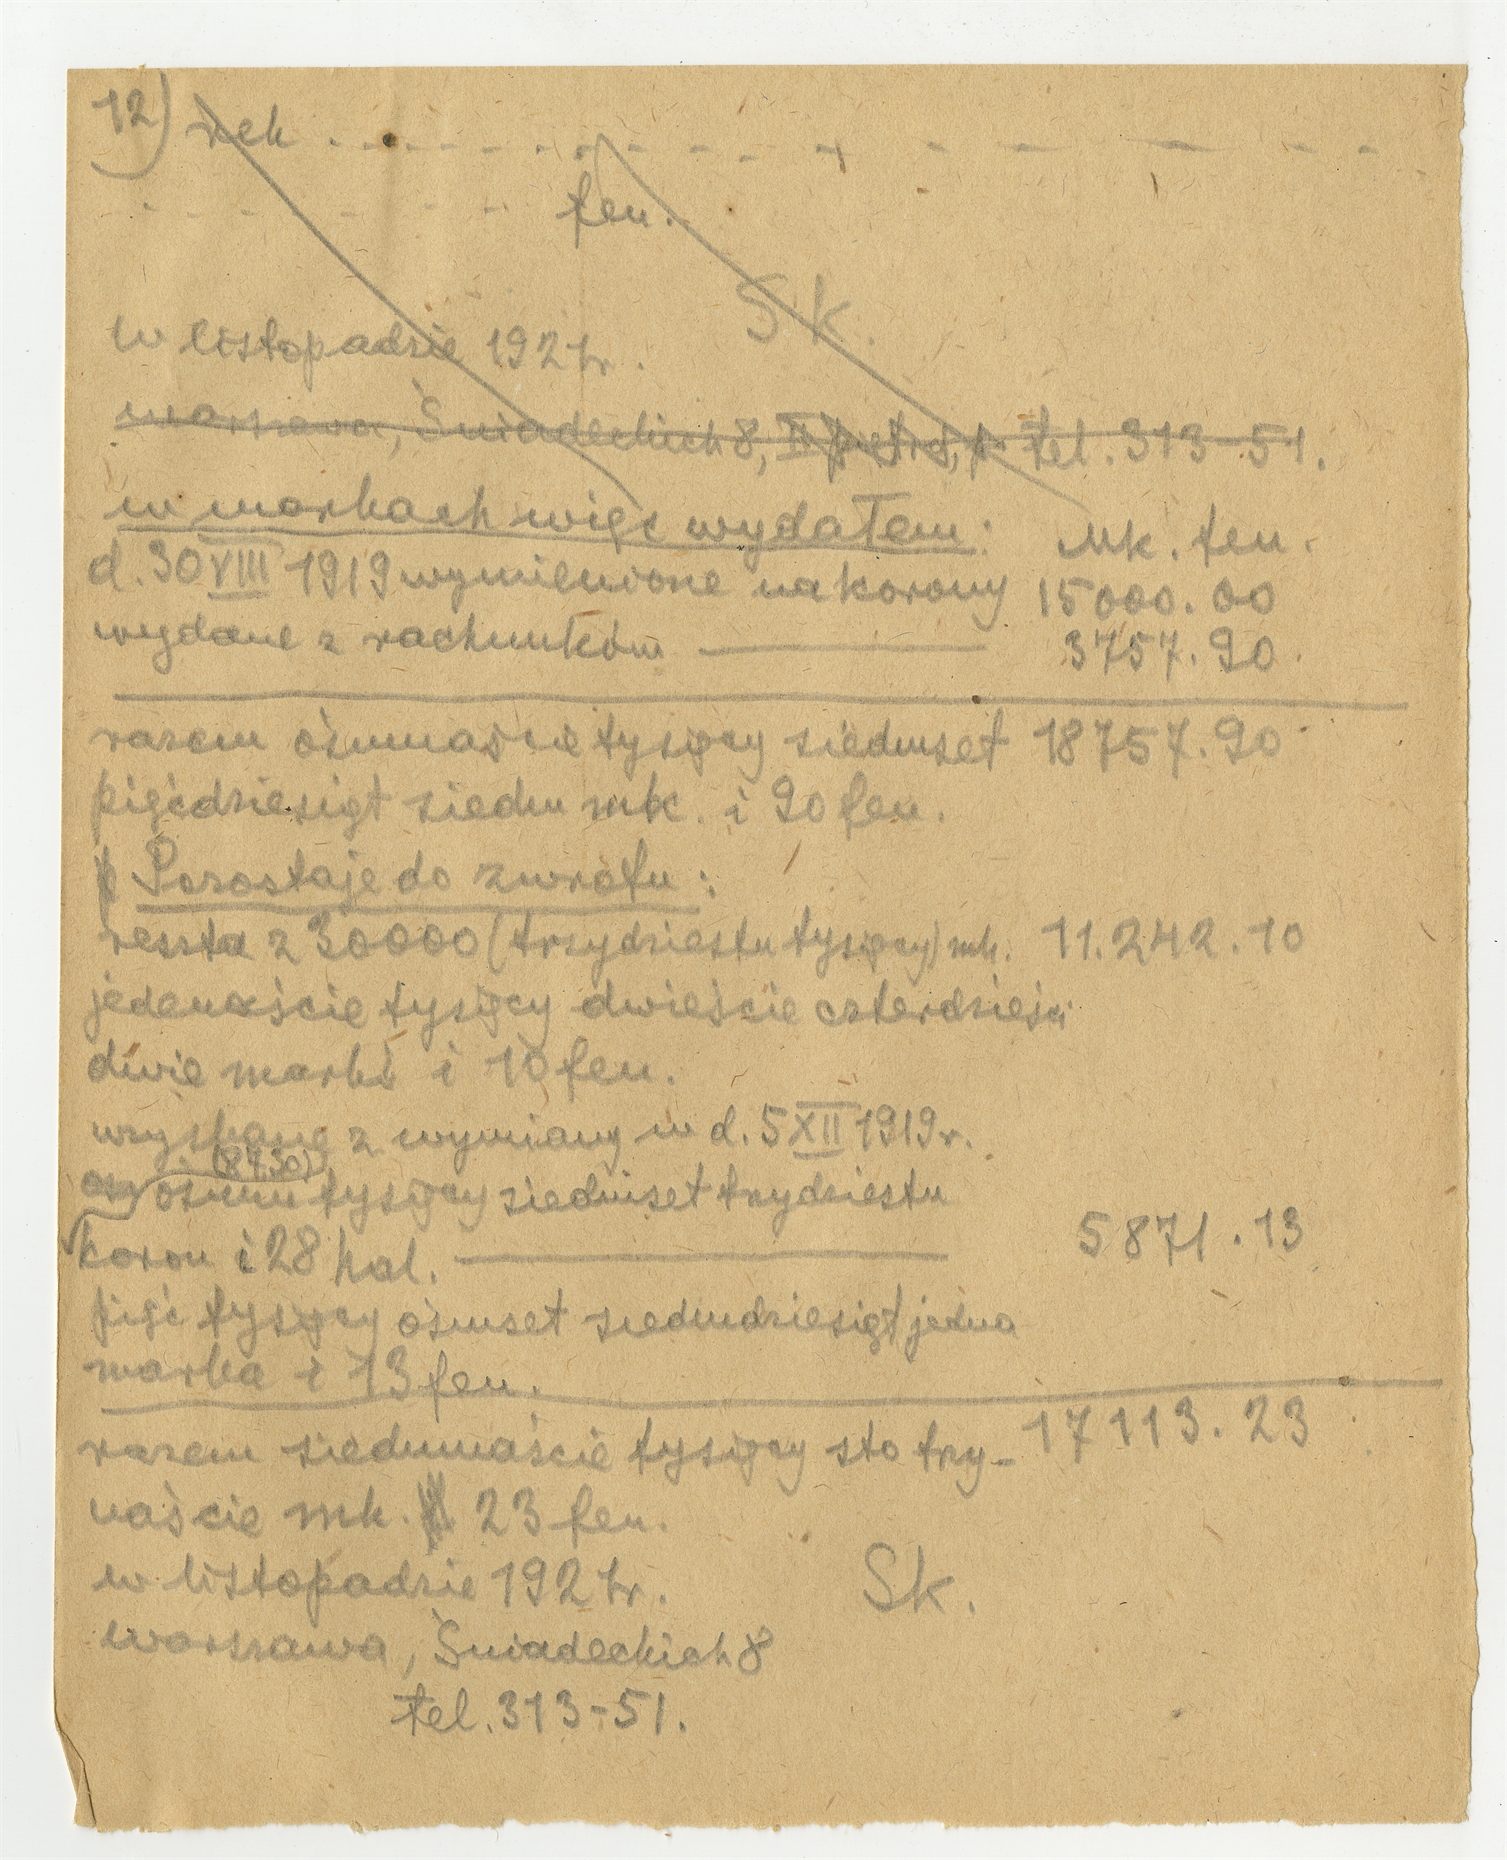 12) rek . - - - - - - - - - - - - - - -
- - - - - - - fen.
Sk.
w listopadzie 1921r.
Warszawa, Śniadeckich 8, II p. tel. 313-51.
w markach więc wydałem: Mk. fen.
d. 30 VIII 1919 wymienione na korony 15000.00
wydane z rachunków 3757.90
razem ośmnaście tysięcy siedmset 18757.90
pięćdziesiąt siedm mk. i 90 fen.
Pozostaje do zwrotu:
reszta z 30000 (trzydziestu tysięcy) mk. 11.242.10
jedenaście tysięcy dwieście czterdzieści
dwie marki i 10 fen.
uzyskane z wymiany w d. 5 XII 1919 r.
(8730)
ośmiu tysięcy siedmset trzydziestu
koron i 28 hal. 5871.13
pięć tysięcy ośmset siedmdziesiąt jedna
marka i 13 fen.
razem siedmnaście tysięcy sto trzy- 17113.23
naście mk. 23 fen.
w listopadzie 1921r. Sk.
Warszawa, Śniadeckich 8
tel. 313-51.